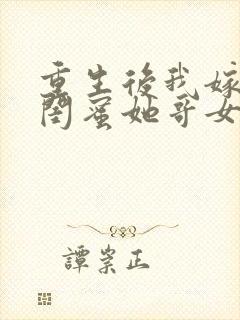 重生後我嫁
閨蜜她哥女
譚崇正